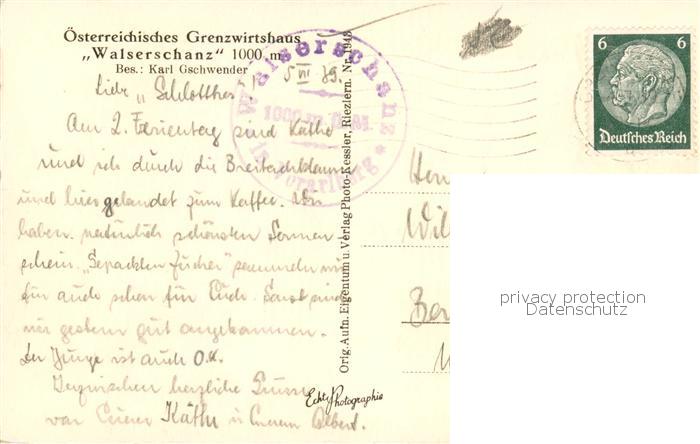 Österreichisches Grenzwirtshaus
„Walserschanz" 1000 m
Bes.: Karl Gschwender
5 VII 39.
Walserschanz *
1000 m ü. M.
in Vorarlberg
6 6
Deutsches Reich
Am 2. Ferientag sind Käthe
und ich durch die Breitachklamm
und hier gelandet zum Kaffee. Wir
haben natürlich schönsten Sonnen-
schein. „Gepackten Zucker" sammeln wir
für auch schon für Euch. Sonst sind
wir gestern gut angekommen.
Der Junge ist auch O.K.
Inzwischen herzliche Grüsse
von Eurer Käthe u Eurem Albert.
Orig. Aufn. Eigentum u. Verlag Photo-Kessler, Riezlern. Nr. 1948
Echte Photographie
privacy protection
Datenschutz